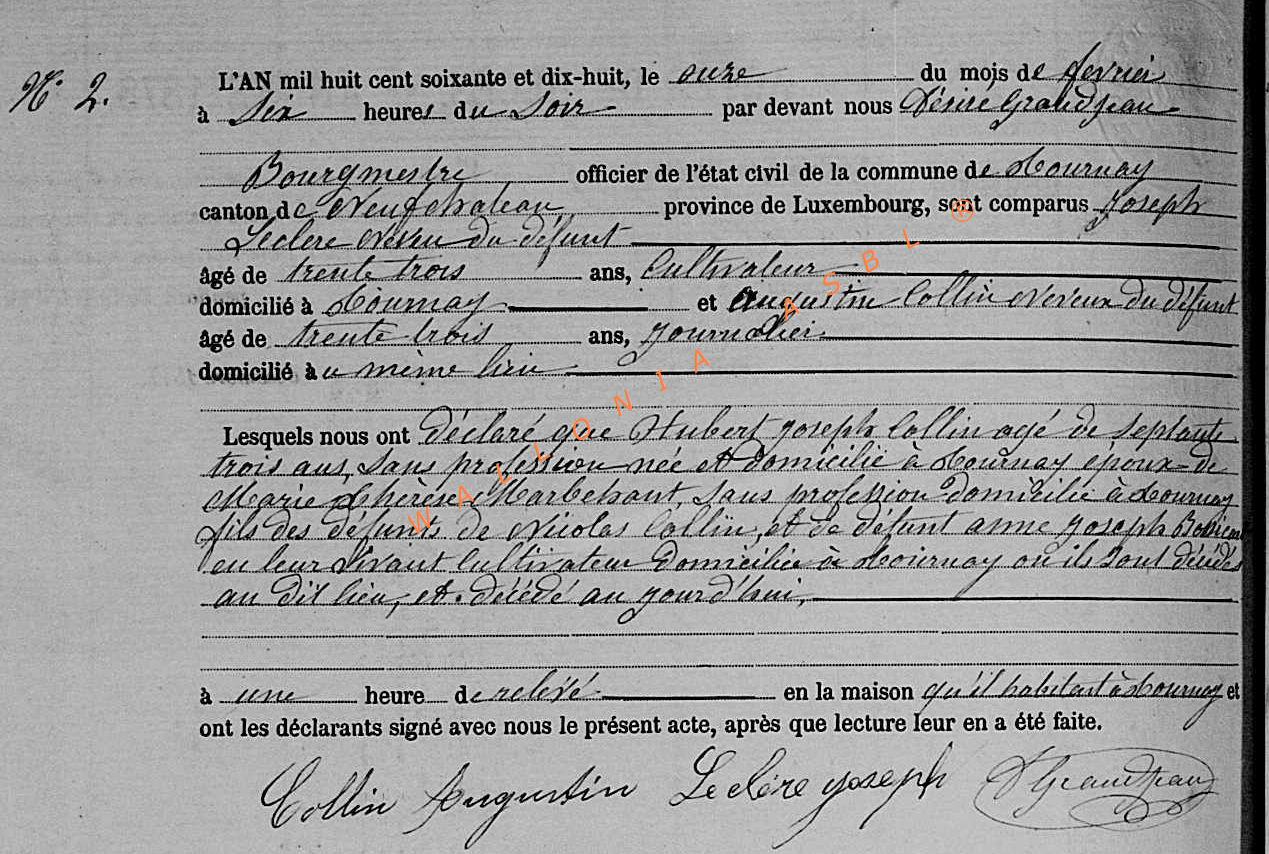 N° 2.
L'AN mil huit cent soixante et dix-huit, le onze du mois de fevrier
à six heures du soir par devant nous Désiré Grandjean
Bourgmestre officier de l'état civil de la commune de Tournay
canton de Neufchateau, province de Luxembourg, sont comparus Joseph
Leclere neveu du défunt
âgé de trente trois ans, Cultivateur
domicilié à Tournay et Augustin Collin neveux du défunt
âgé de trente trois ans, journalier
domicilié au même lieu
Lesquels nous ont déclaré que Hubert joseph Collin agé de septante
trois ans, sans profession née et domicilié à Tournay epoux de
Marie Thérèse Marbehant, sans profession domicilié à Tournay
fils des défunts de Nicolas Collin, et de défunt anne joseph
en leur vivant Cultivateur domicilié à Tournay où ils sont décédés
au dit lieu, et décédé au jourd'hui,
à une heure de relevé en la maison qu'il habitait à Tournay et
ont les déclarants signé avec nous le présent acte, après que lecture leur en a été faite.
Collin Augustin Leclère joseph D Grandjean
WALLONIA ASBL ®